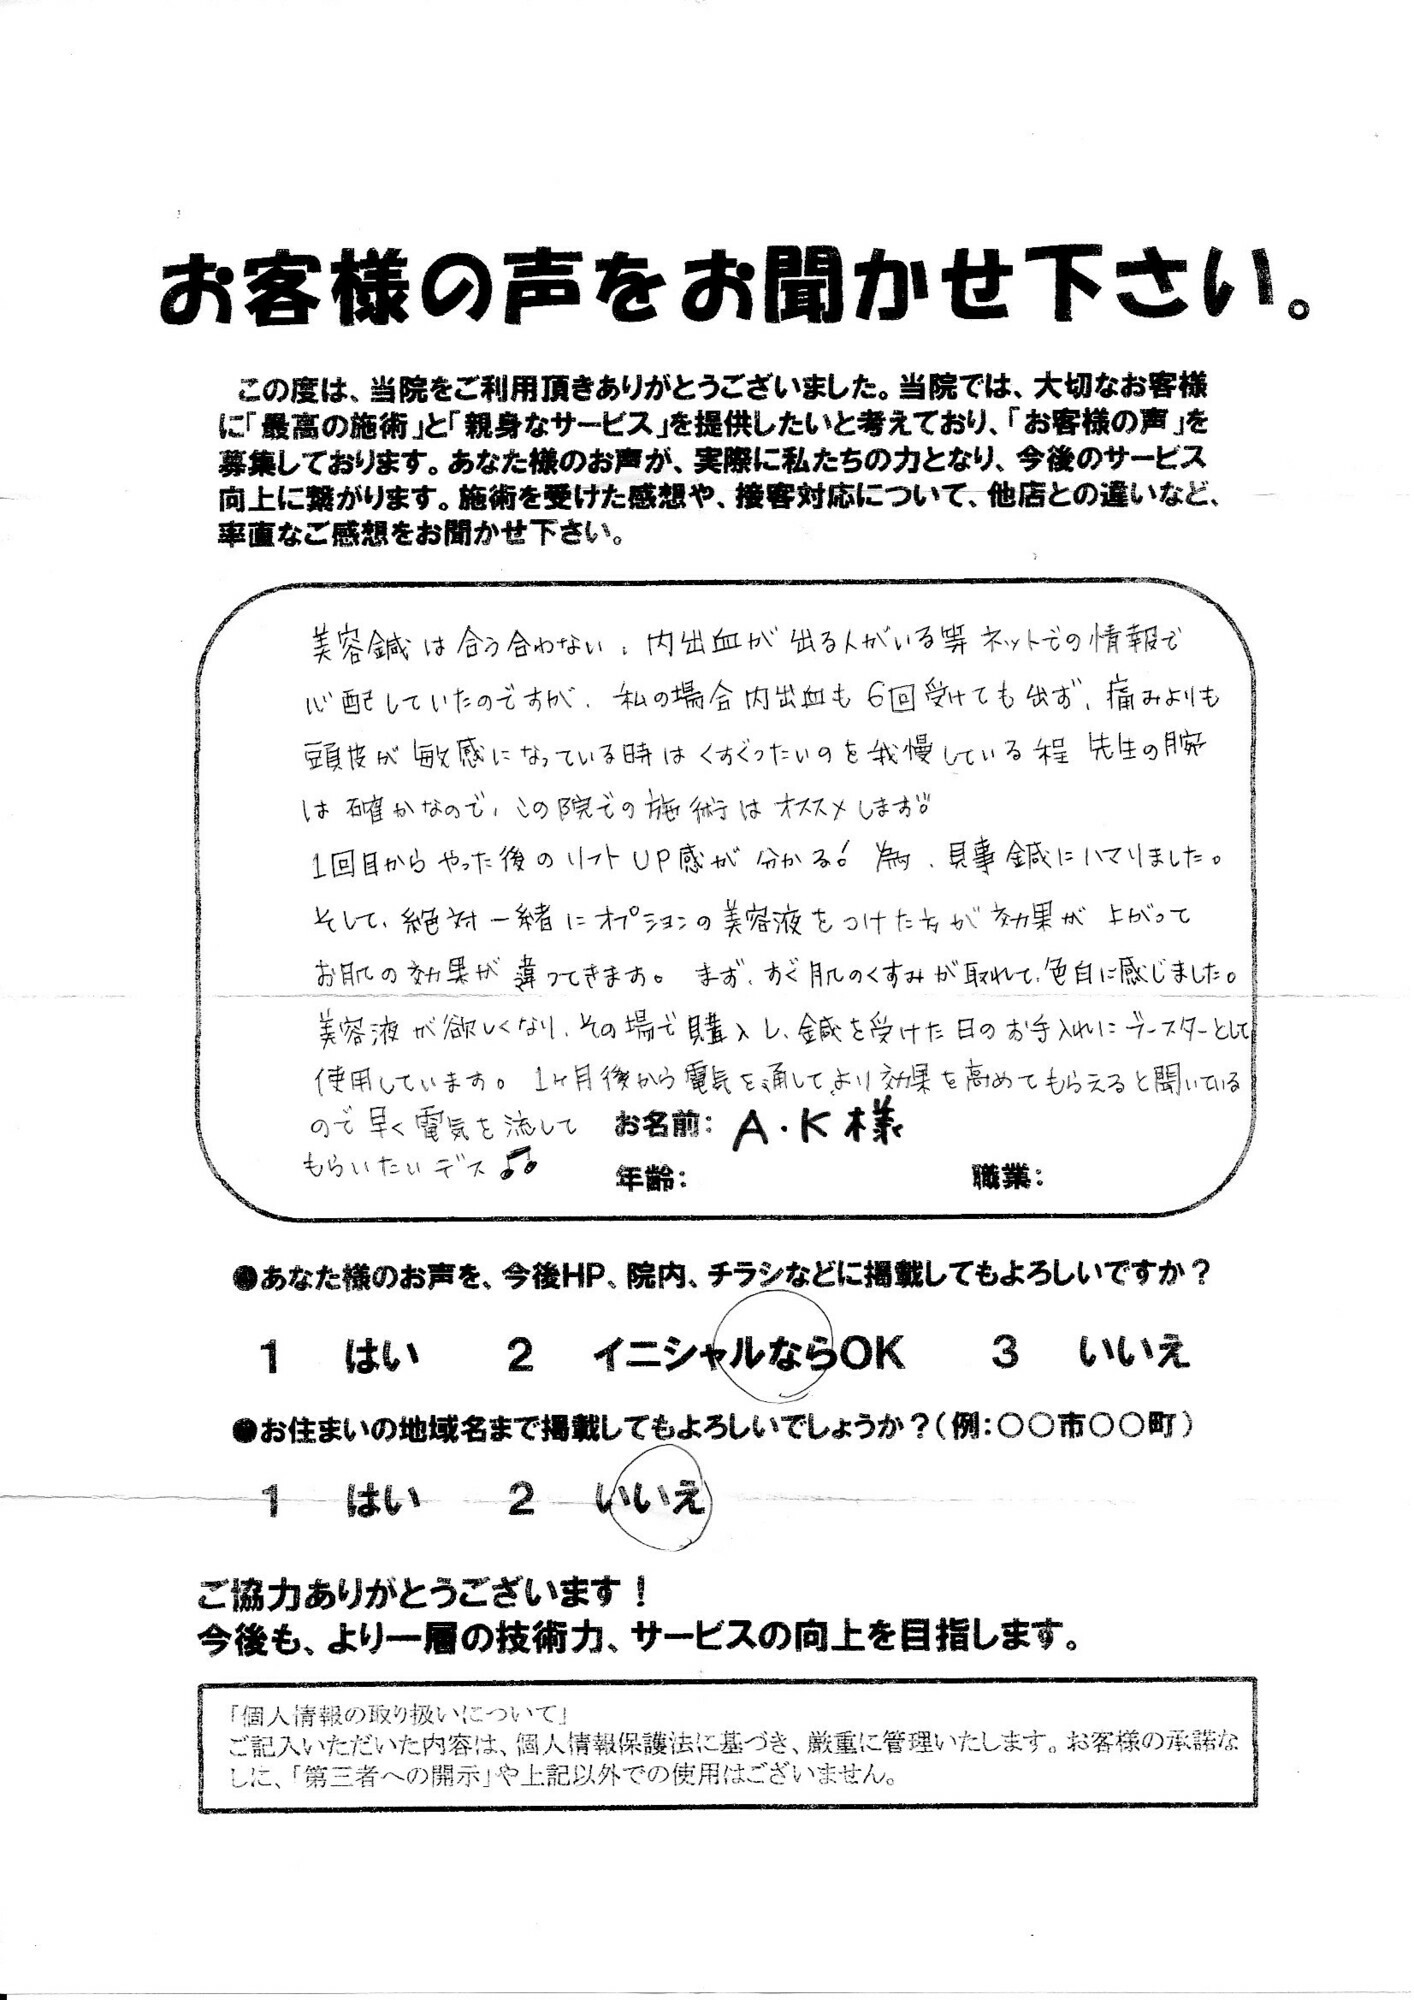 お客様の声をお聞かせ下さい。
この度は、当院をご利用頂きありがとうございました。当院では、大切なお客様
に「最高の施術」と「親身なサービス」を提供したいと考えており、「お客様の声」を
募集しております。あなた様のお声が、実際に私たちの力となり、今後のサービス
向上に繋がります。施術を受けた感想や、接客対応について、他店との違いなど、
率直なご感想をお聞かせ下さい。
美容鍼は合う合わない、内出血が出る人がいる等ネットでの情報で
心配していたのですが、私の場合内出血も6回受けても出ず、痛みよりも
頭皮が敏感になっている時はくすぐったいのを我慢している程 先生の腕
は確かなので、この院での施術はオススメします!!
1回目からやった後のリフトUP感が分かる!為、見事鍼にハマりました。
そして、絶対一緒にオプションの美容液をつけた方が効果が上がって
お肌の効果が違ってきます。まず、すぐ肌のくすみが取れて、色白に感じました。
美容液が欲しくなり、その場で購入し、鍼を受けた日のお手入れにブースターとして
使用しています。1ヶ月後から電気を通してより効果を高めてもらえると聞いている
ので早く電気を流して
もらいたいデス♫
お名前: A・K様
年齢: 職業:
●あなた様のお声を、今後HP、院内、チラシなどに掲載してもよろしいですか?
1 はい 2 イニシャルならOK 3 いいえ
●お住まいの地域名まで掲載してもよろしいでしょうか?(例:○○市○○町)
1 はい 2 いいえ
ご協力ありがとうございます!
今後も、より一層の技術力、サービスの向上を目指します。
「個人情報の取り扱いについて」
ご記入いただいた内容は、個人情報保護法に基づき、厳重に管理いたします。お客様の承諾な
しに、「第三者への開示」や上記以外での使用はございません。